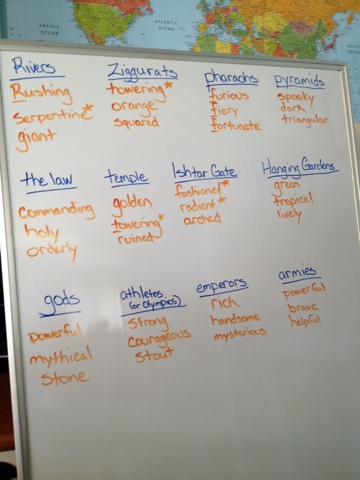 PACIFIC
OCEAN
ATLANTIC
OCEAN
INDIAN
OCEAN
Rivers
Rushing
serpentine*
giant
Ziggurats
towering*
orange
squared
pharaohs
furious
fiery
fortunate
pyramids
spooky
dark
triangular
the law
commanding
holy
orderly
temple
golden
towering*
ruined
Ishtar Gate
fashionel*
radient*
arched
Hanging Gardens
green
tropical
lively
gods
powerful
mythical
stone
athletes
(or Olympics)
strong
courageous
stout
emperors
rich
handsome
mysterious
armies
powerful
brave
helpful